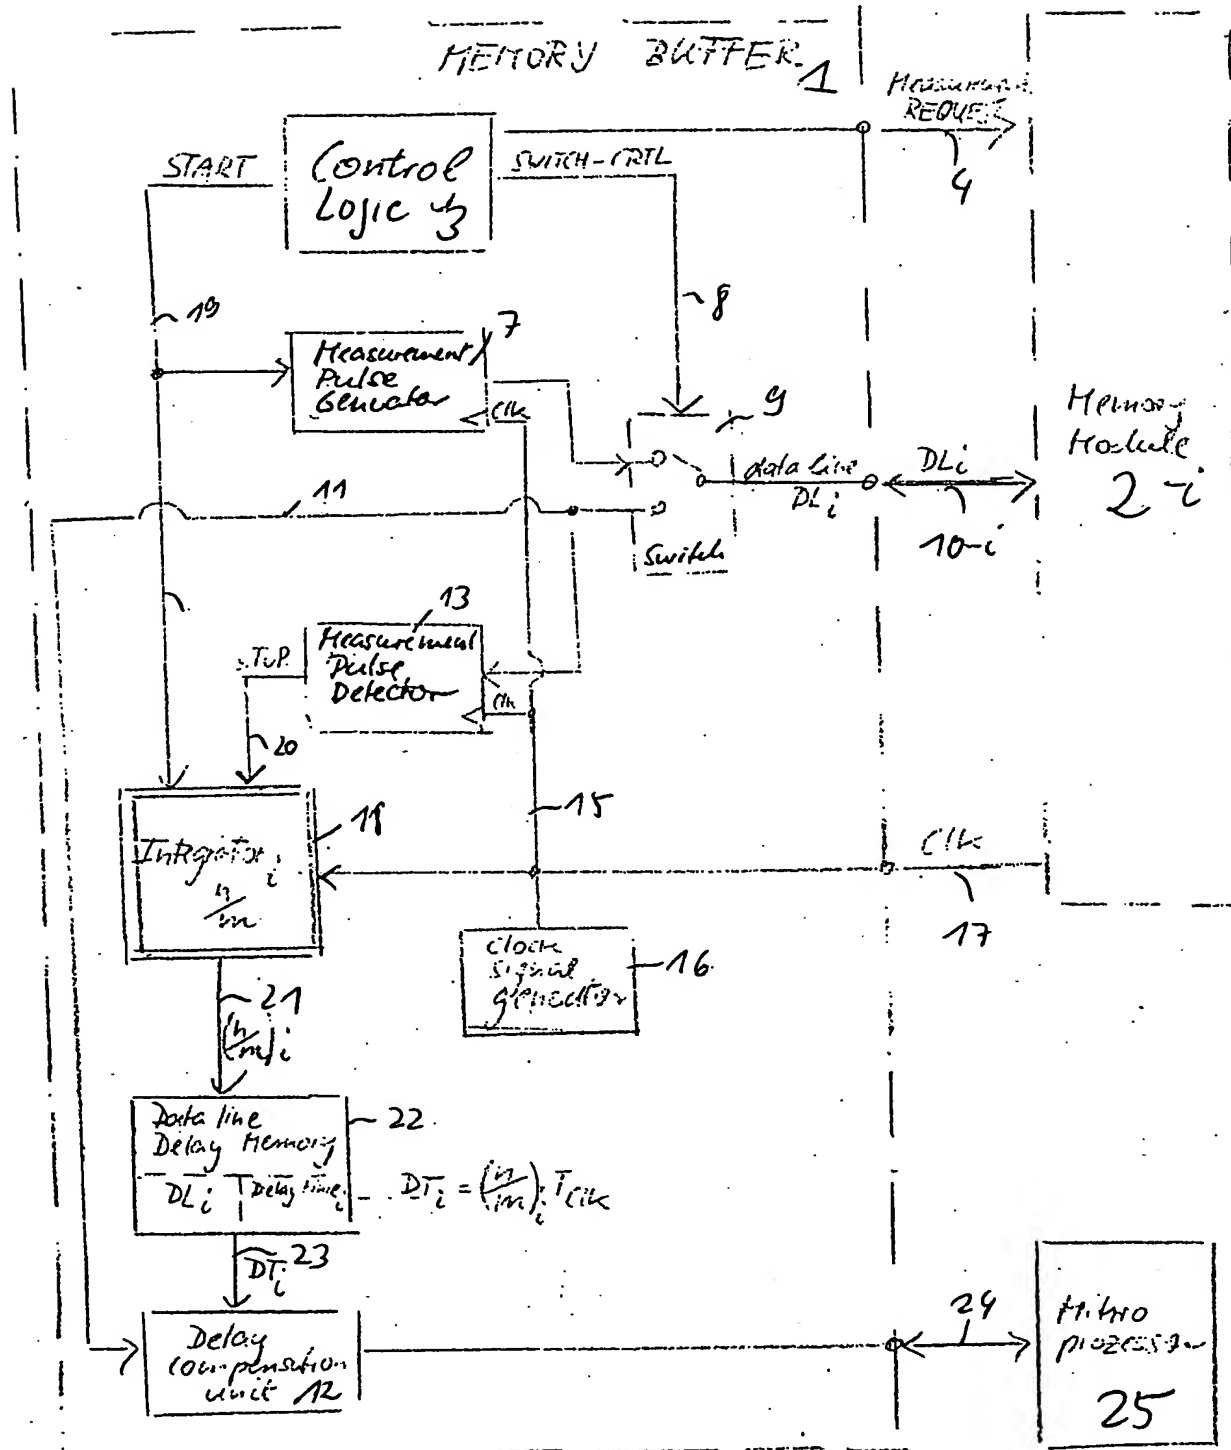 MEMORY BUFFER 1
Measurement
REQUEST
4
START
Control
Logic 3
SWITCH-CRTL
19
8
7
Measurement
Pulse
Generator
Clk
9
data line
DLi
Switch
DLi
10-i
Memory
Module
2-i
11
13
Measurement
Pulse
Detector
Clk
20
15
Integrator i
n/m
Clk
17
Clock
signal
generator
16
21
(n/m)i
Data line
Delay Memory
DLi Delay time i
22
DTi = (n/m)i TClk
DTi 23
Delay
compensation
unit 12
24
Mikro
prozessor
25